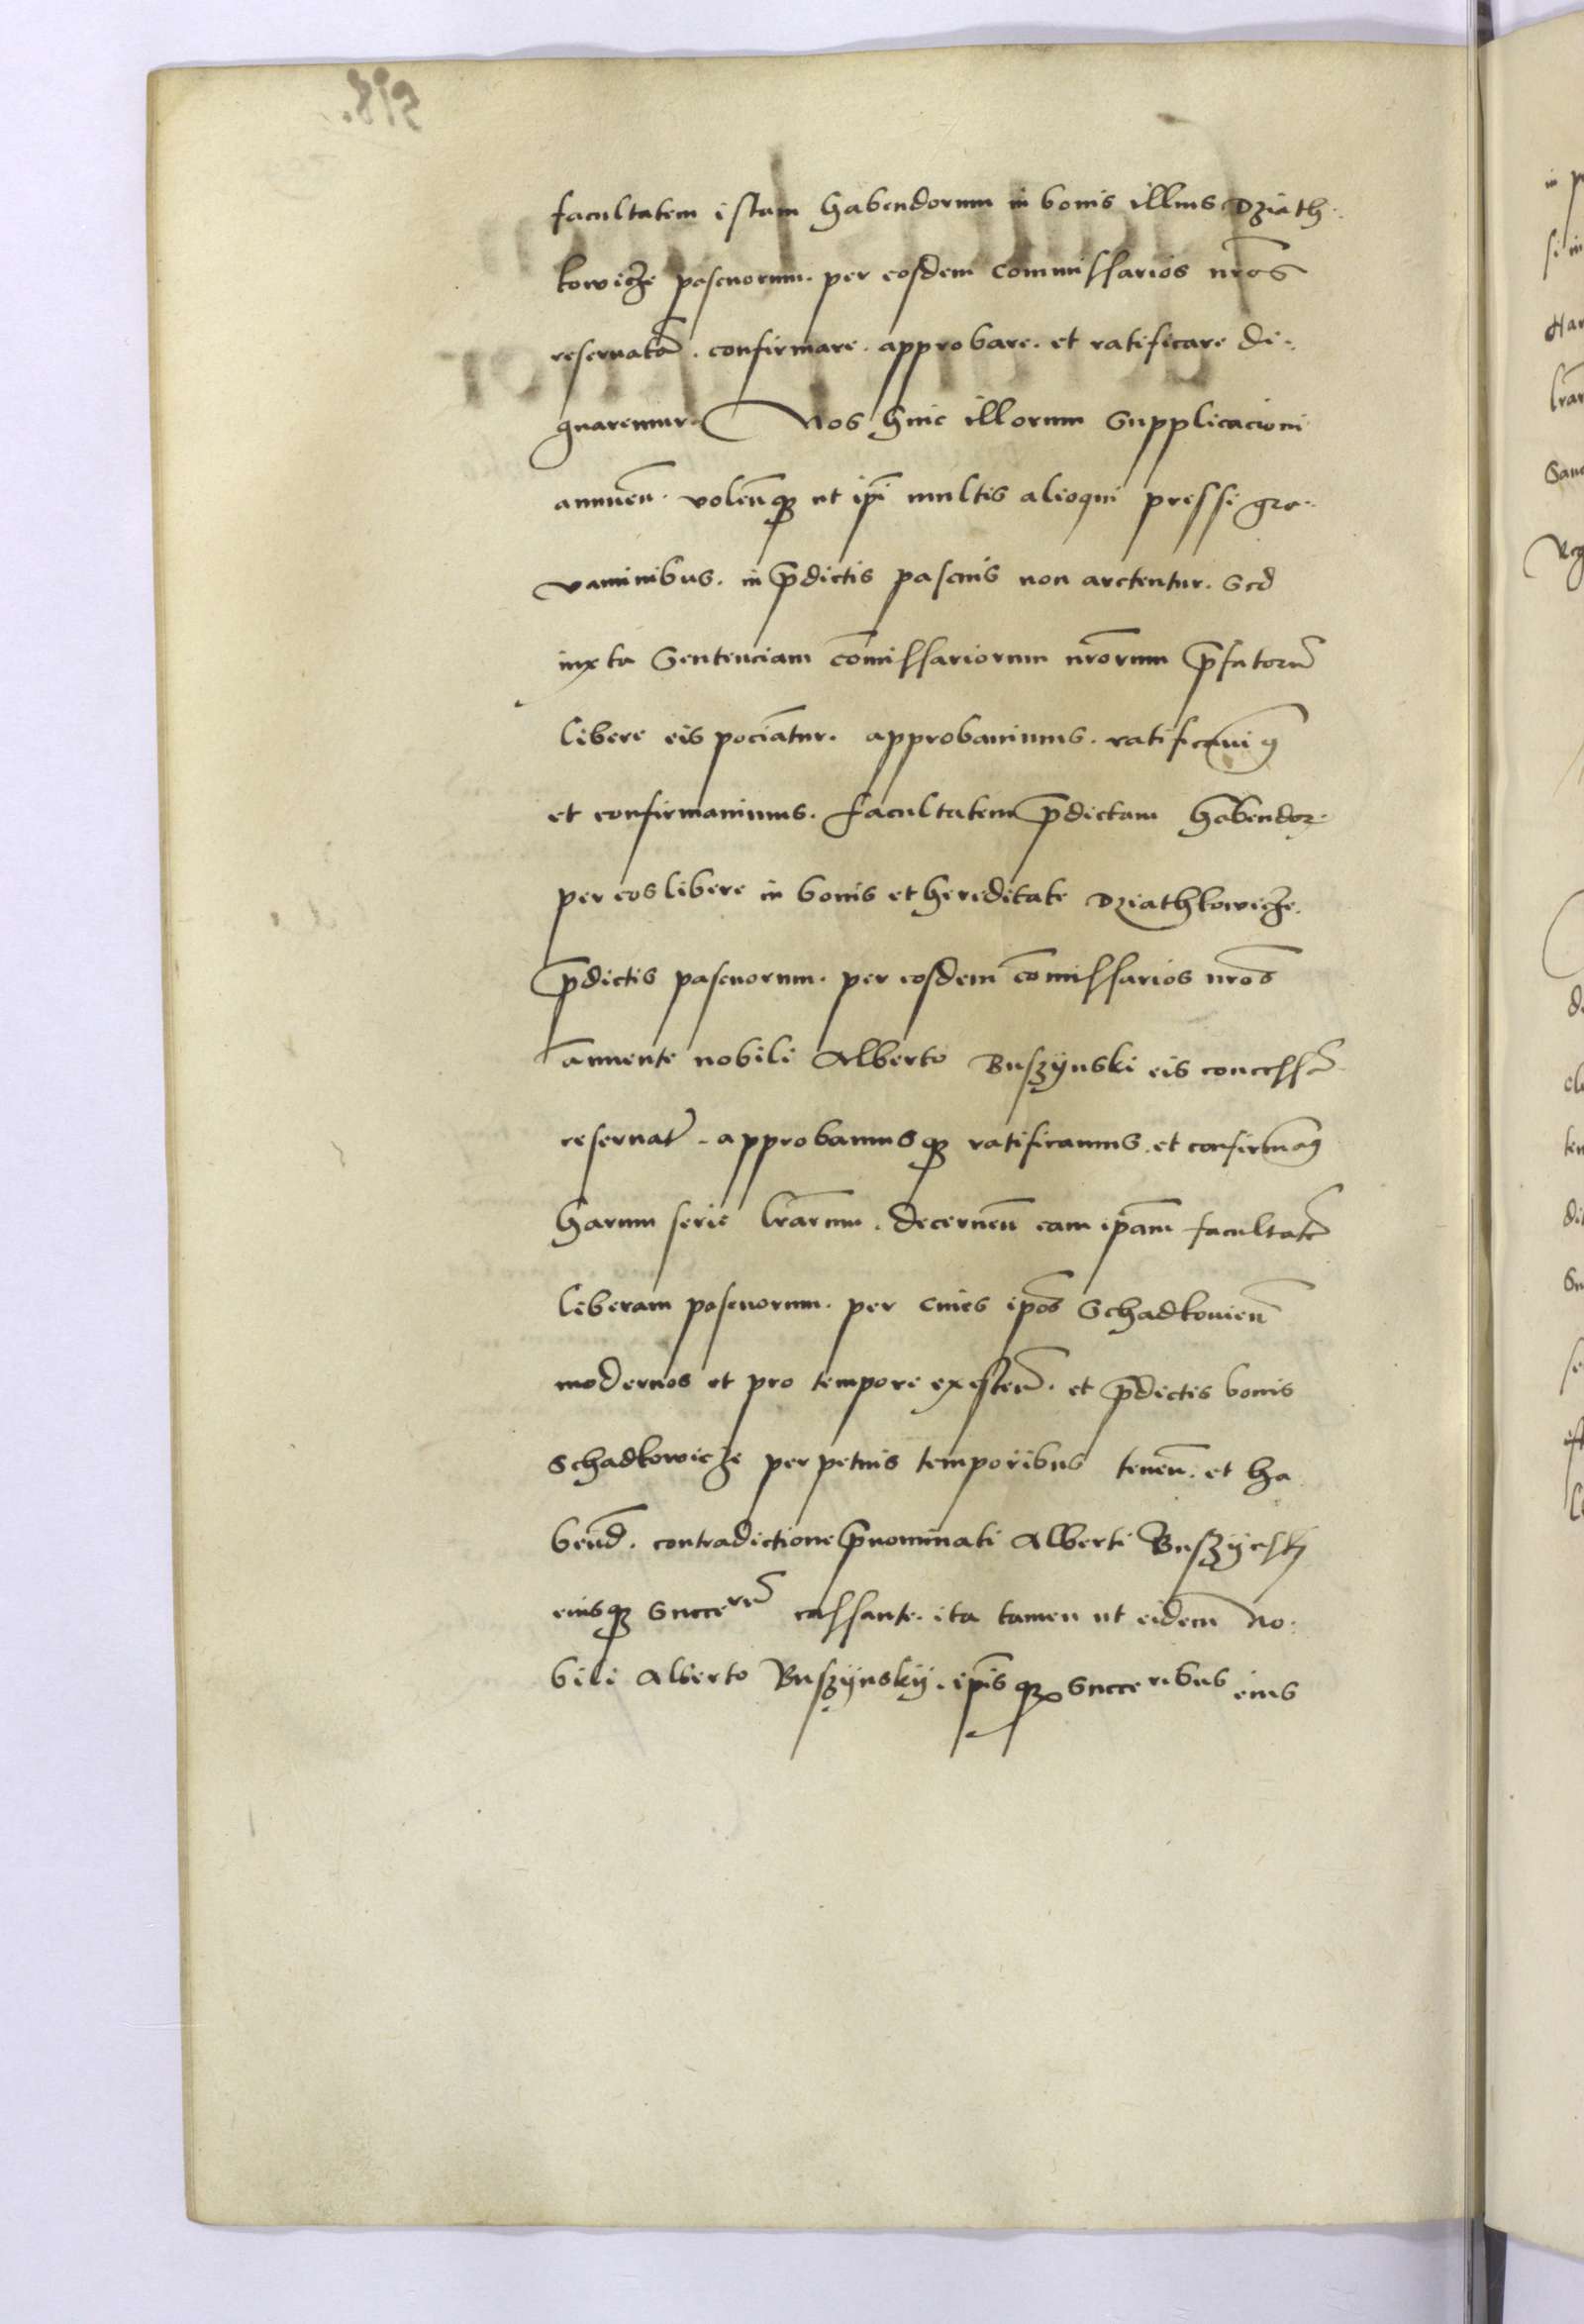 facultatem istam habendorum in bonis illius Dziath-
kowicze pascuorum. per eosdem commissarios nr̄os
reservatā. confirmare. approbare. et ratificare di-
gnaremur. Nos huic illorum Supplicacioni
annuen̄. volen̄qȝ ut ip̄i multis alioqui pressi gra-
vaminibus. in p̄dictis pascuis non arctentur. Sed
iuxta Sentenciam com̄issariorum nr̄orum p̄fatorū
libere eis pociātur. approbavimus. ratificavimꝰ
et confirmavimus. facultatem p̄dictam habendoꝝ
per eos libere in bonis et hereditate Dziathkowicze.
p̄dictis pascuorum. per eosdem com̄issarios nr̄os
annuente nobili Alberto Buszÿnski eis concessā
reservatā. approbamusqȝ ratificamus. et confirmamꝰ
harum serie lr̄arum. decernen̄ eam ip̄am facultatē
liberam pascuorum. per cives ip̄os Schadkovien̄
modernos et pro tempore existen̄. et p̄dictis bonis
Schadkowicze perpetuis temporibus tenen̄. et ha
bend̄. contradictione p̄nominati Alberti Buszÿnskÿ
eiusqȝ Succerū cassante. ita tamen ut eidem No-
bili Alberto Buszÿnskÿ. ip̄isqȝ Succeribus eius